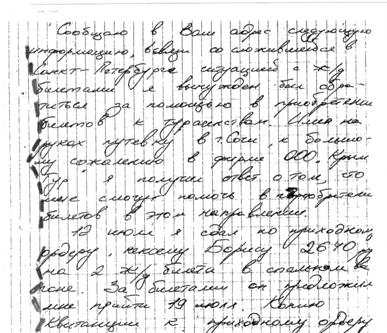 Сообщаю в Ваш адрес следующую
информацию, в связи со сложившейся в
Санкт-Петербурге ситуацией с ж/д
билетами я вынужден был обра-
титься за помощью в приобретении
билетов к турагенствам. Имея на
руках путевку в г. Сочи, к большо-
му сожалению в фирме ООО. Крым
Тур я получил ответ о том, что
мне смогут помочь в приобретении
билетов в этом направлении.
12 июля я сдал по приходному
ордеру, некоему Борису 2640 р
на 2 ж/д билета в спальном ва
гоне. За билетами он предложил
мне прийти 19 июля. Копию
квитанции к приходному ордеру